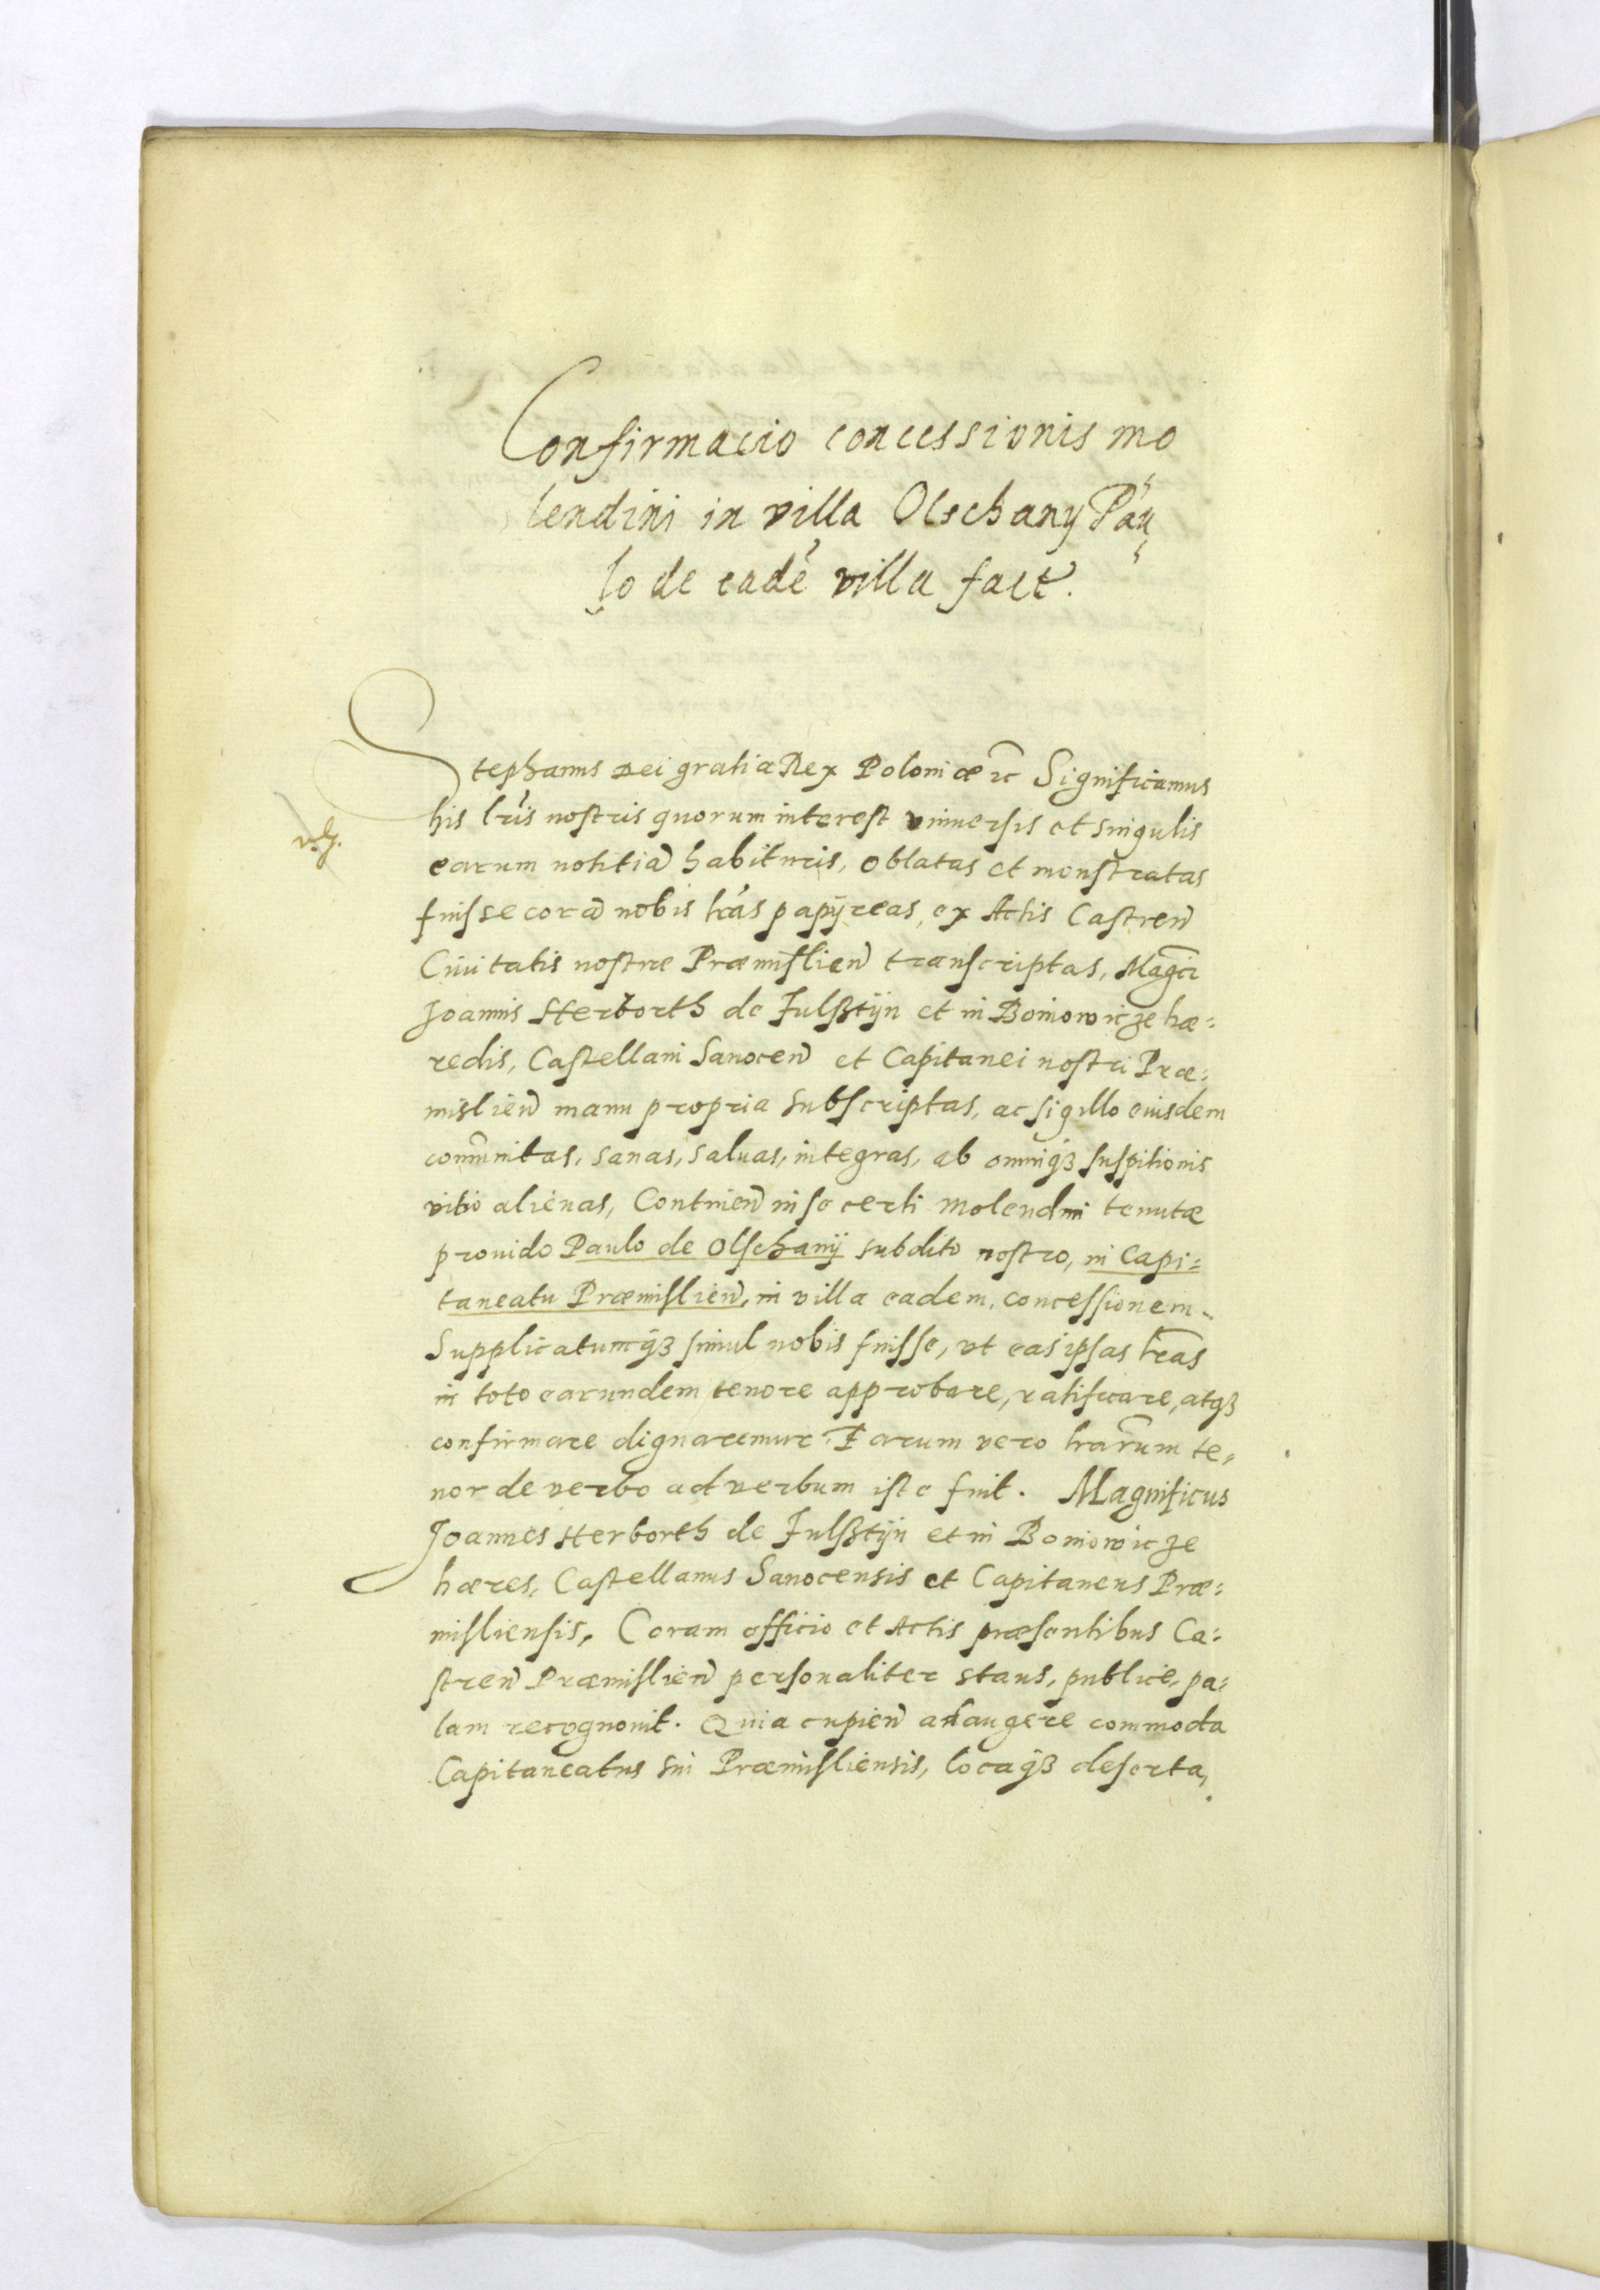 Confirmacio concessionis mo
lendini in villa Olschany Pau
lo de eadē villa fact.
Stephanus Dei gratia Rex Poloniæ etc Significamus
his lris nostris quorum interest vniuersis et singulis
earum notitiā habituris, oblatas et monstratas
fuisse corā nobis lras papÿreas, ex Actis Castreñ
Ciuitatis nostræ Præmislieñ transcriptas, Magci
Joannis Herborth de Fulßtÿn et in Boniowicze hæ=
redis, Castellani Sanoceñ et Capitanei nostri Præ=
mislieñ manu propria subscriptas, ac sigillo eiusdem
com̄unitas, sanas, saluas, integras, ab omniqȝ suspitionis
vitio alienas, Contineñ in se certi molendini tenutæ
prouido Paulo de Olschanÿ subdito nostro, in Capi=
taneatu Præmislieñ, in villa eadem, concessionem.
Supplicatumqȝ simul nobis fuisse, vt eas ipsas lras
in toto earundem tenore approbare, ratificare, atqȝ
confirmare dignaremur. Earum vero lrarum te=
nor de verbo ad verbum iste fuit. Magnificus
Joannes Herborth de Fulßtÿn et in Boniowicze
hæres, Castellanus Sanocensis et Capitaneus Præ=
misliensis, Coram officio et Actis præsentibus Ca=
streñ Præmislieñ personaliter stans, publice, pa=
lam recognouit. Quia cupieñ adaugere commoda
Capitaneatus sui Præmisliensis, locaqȝ deserta,